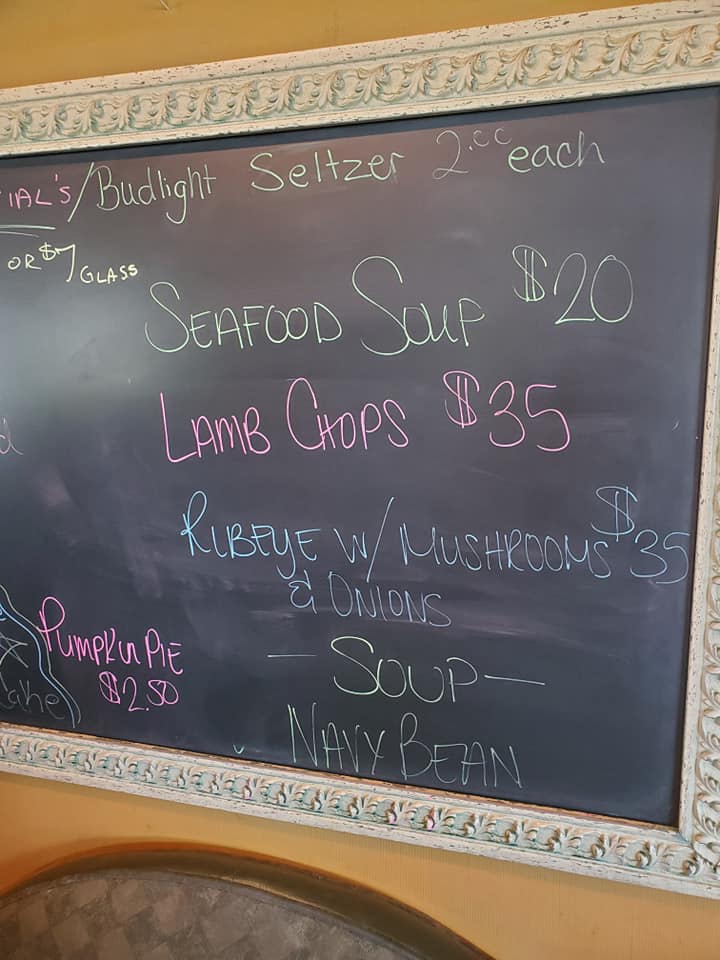 IAL'S/Budlight Seltzer 2.00 each
OR $7/GLASS
SEAFOOD SOUP $20
LAMB CHOPS $35
RIBEYE W/ MUSHROOMS $35
& ONIONS
PUMPKIN PIE
$2.50
- SOUP -
NAVY BEAN